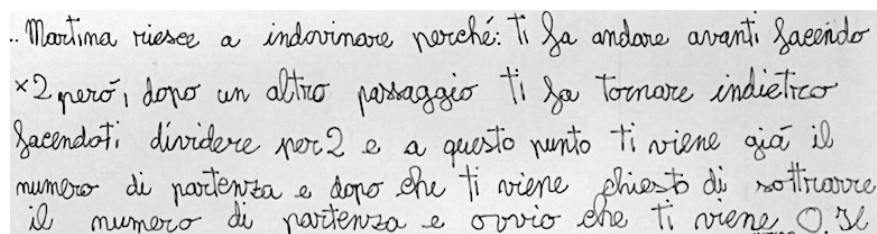 .. Martina riesce a indovinare perché: ti fa andare avanti facendo
×2 però, dopo un altro passaggio ti fa tornare indietro
facendoti dividere per 2 e a questo punto ti viene già il
numero di partenza e dopo che ti viene chiesto di sottrarre
il numero di partenza e ovvio che ti viene 0. Se